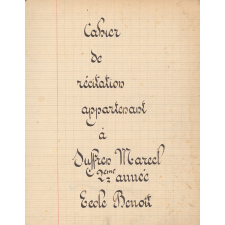 Cahier
de
récitation
appartenant
à
Suffren Marcel
2ème année
Ecole Benoit